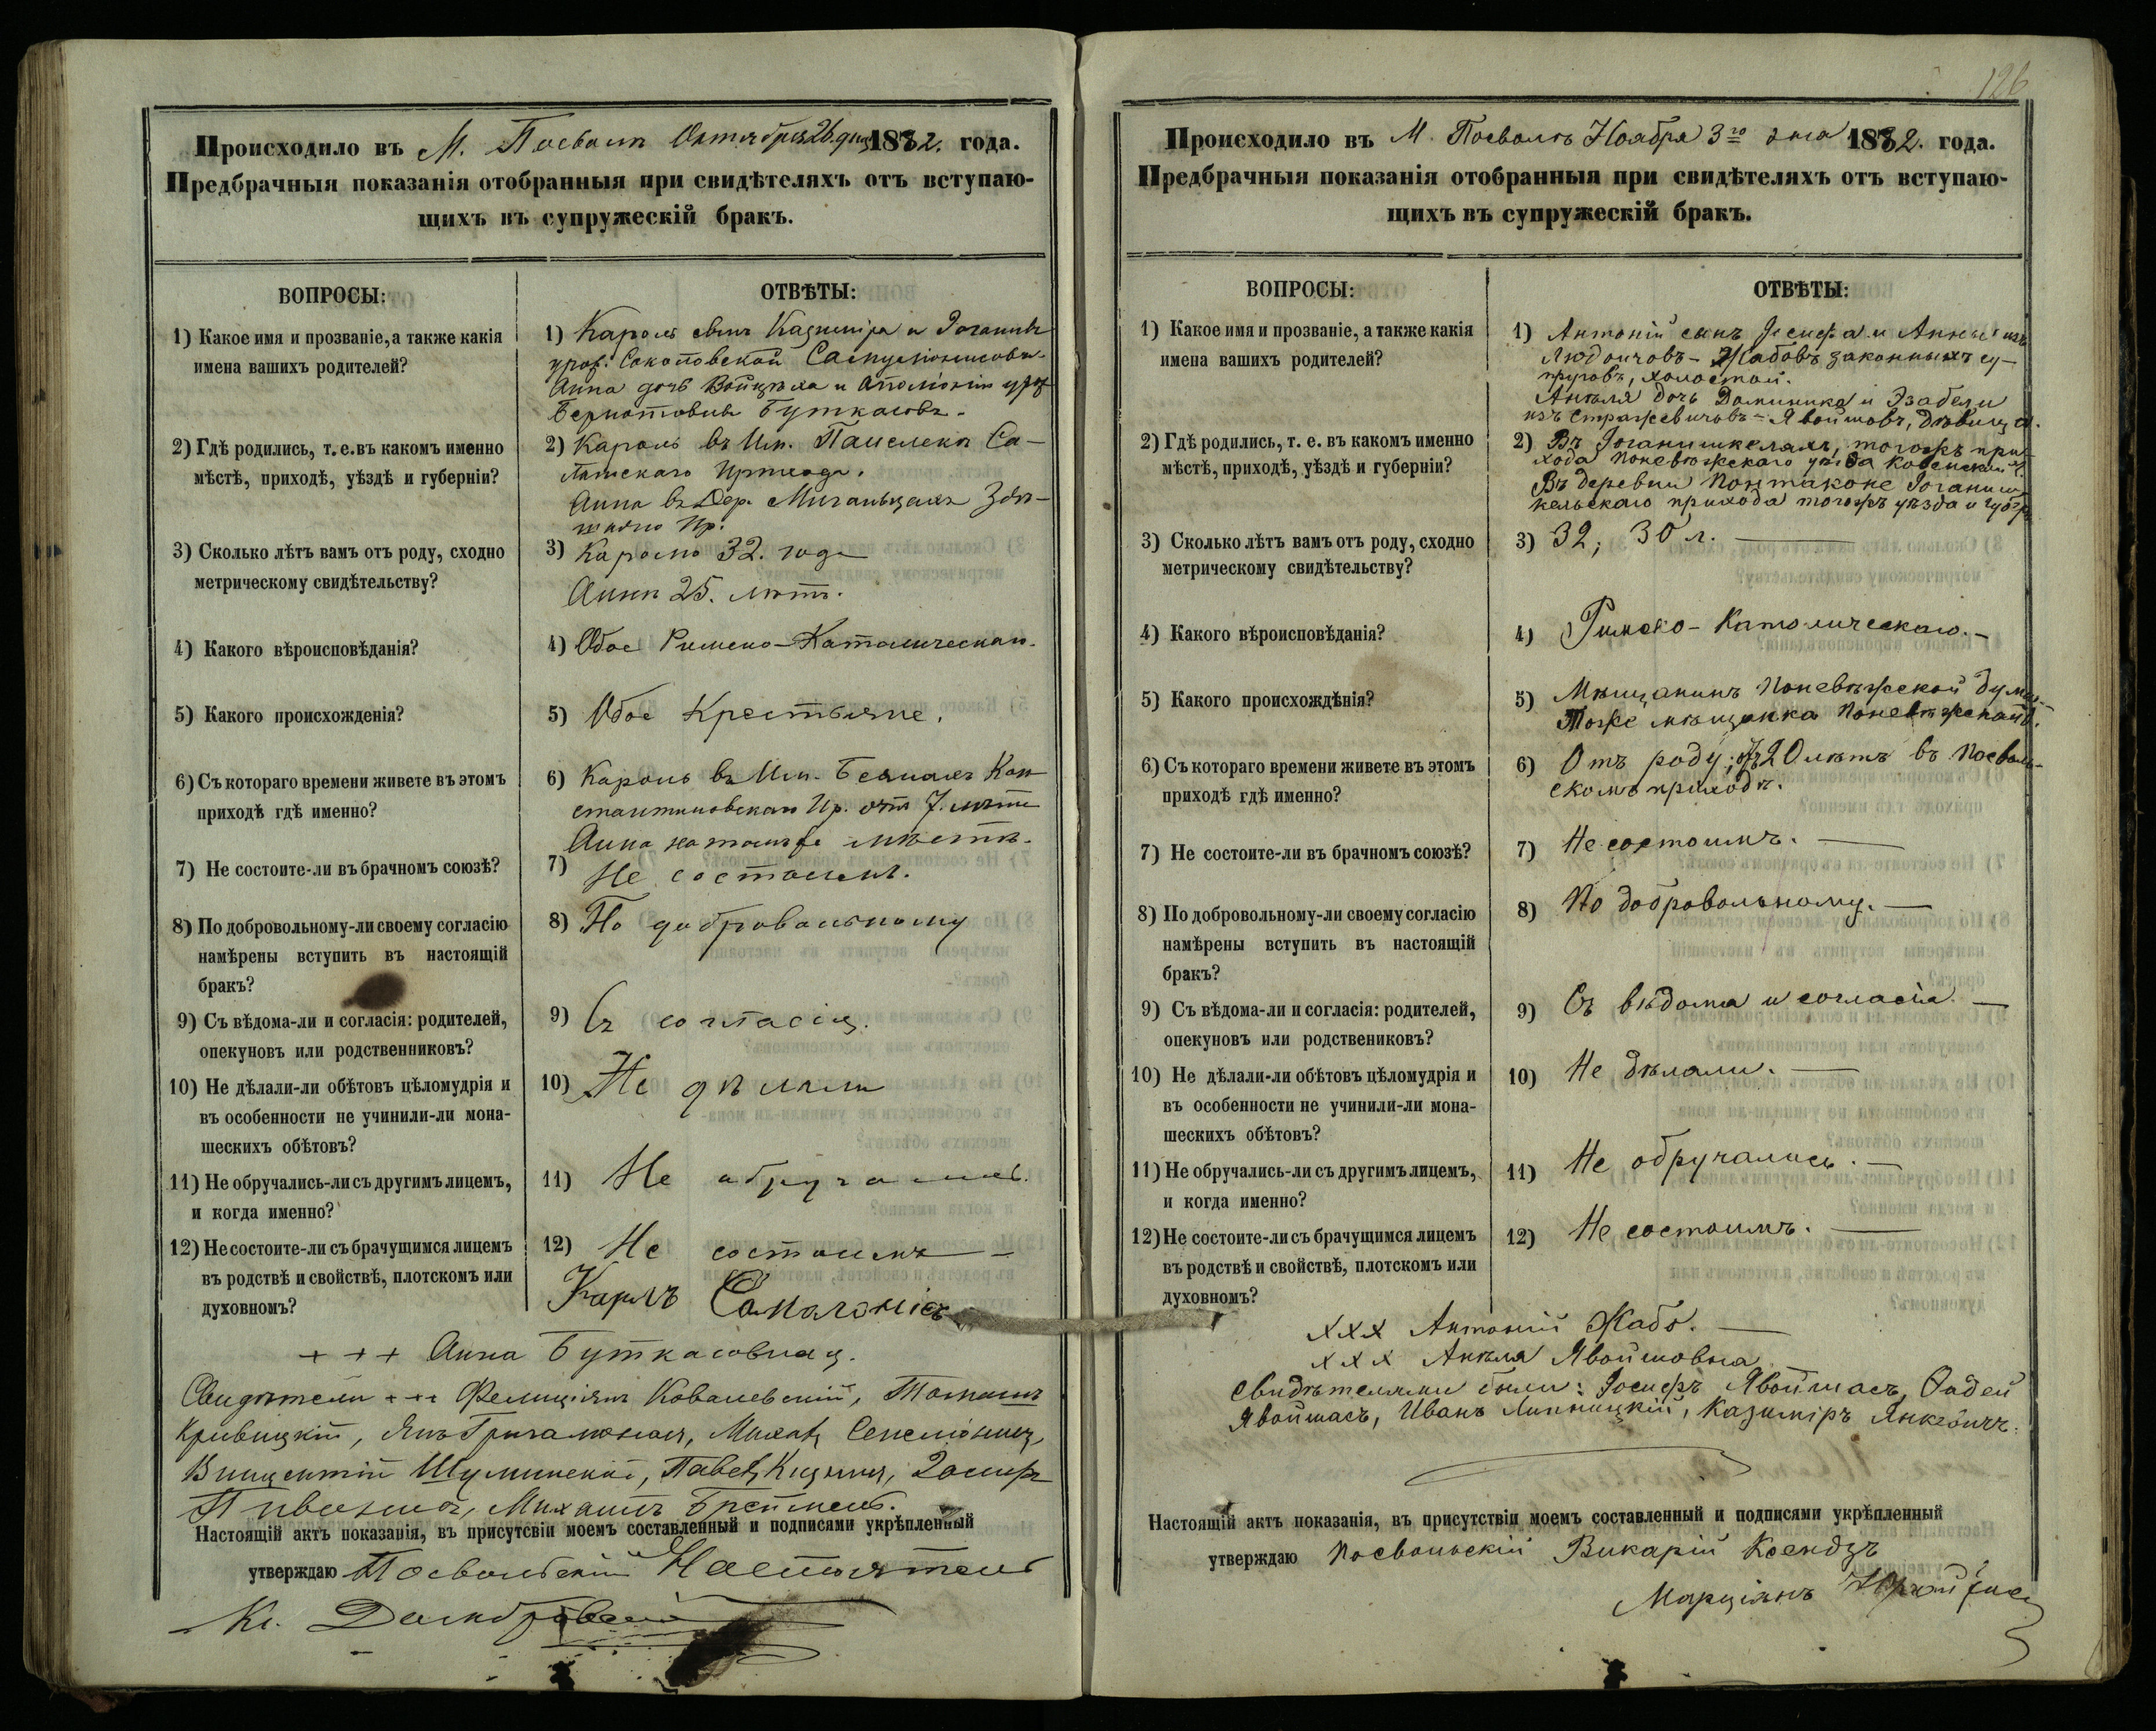 Происходило въ М. Посволь Октября 26 дня 1882. года.
Предбрачныя показанія отобранныя при свидѣтеляхъ отъ вступаю-
щихъ въ супружескій бракъ.
ВОПРОСЫ:
ОТВѢТЫ:
1) Какое имя и прозваніе, а также какія
имена вашихъ родителей?
1) Кароль сынъ Казиміра и
урож. Соколовской
Анна дочь Войцѣха и Аполіоніи урож
Бернатовичъ Буткасовъ.
2) Гдѣ родились, т. е. въ какомъ именно
мѣстѣ, приходѣ, уѣздѣ и губерніи?
2) Кароль въ Им. Са-
Прихода.
Анна въ Дер.
Пр.
3) Сколько лѣтъ вамъ отъ роду, сходно
метрическому свидѣтельству?
3) Каролю 32. года
Аннѣ 25. лѣтъ.
4) Какого вѣроисповѣданія?
4) Обое Римско-Католическаго.
5) Какого происхожденія?
5) Обое Крестьяне.
6) Съ котораго времени живете въ этомъ
приходѣ гдѣ именно?
6) Кароль въ Им. Кон
стантиновскаго Пр. отъ 7. лѣтъ
Анна на томъ же мѣстѣ.
7) Не состоите-ли въ брачномъ союзѣ?
7) Не состоимъ.
8) По добровольному-ли своему согласію
намѣрены вступить въ настоящій
бракъ?
8) По добровольному
9) Съ вѣдома-ли и согласія: родителей,
опекуновъ или родственниковъ?
9) Съ согласія.
10) Не дѣлали-ли обѣтовъ цѣломудрія и
въ особенности не учинили-ли мона-
шескихъ обѣтовъ?
10) Не дѣлали
11) Не обручались-ли съ другимъ лицемъ,
и когда именно?
11) Не обручались.
12) Не состоите-ли съ брачущимся лицемъ
въ родствѣ и свойствѣ, плотскомъ или
духовномъ?
12) Не состоимъ —
Карлъ
+ + + Анна Буткасовна
Свидѣтели + + + Фелиціянъ Ковалевскій,
Кривицкій, Янъ Михаъ
Винцентій Шуминскій, Іосифъ
Михаилъ
Настоящій актъ показанія, въ присутсвіи моемъ составленный и подписями укрѣпленный
утверждаю Посвольскій Настоятель
Кс. Домбровскій
126
Происходило въ М. Посволь Ноября 3го дня 1882. года.
Предбрачныя показанія отобранныя при свидѣтеляхъ отъ вступаю-
щихъ въ супружескій бракъ.
ВОПРОСЫ:
ОТВѢТЫ:
1) Какое имя и прозваніе, а также какія
имена вашихъ родителей?
1) Антоній сынъ Іосифа и Анны изъ
Жабовъ законныхъ су-
пруговъ, холостой.
Анѣля дочь Доминика и Эзабели
изъ Стражевичовъ - Явойшовъ, дѣвица.
2) Гдѣ родились, т. е. въ какомъ именно
мѣстѣ, приходѣ, уѣздѣ и губерніи?
2) Въ Іоганишкеляхъ, тогожъ при-
хода Поневѣжскаго уѣзда Ковенской г.
Въ деревни Понтаконе Іоганиш-
кельскаго прихода тогожъ уѣзда и губер.
3) Сколько лѣтъ вамъ отъ роду, сходно
метрическому свидѣтельству?
3) 32; 30 л. —
4) Какого вѣроисповѣданія?
4) Римско-Католическаго. —
5) Какого происхождѣнія?
5) Мѣщанинъ Поневѣжской Думы.
Тоже мѣщанка Поневѣжской Д.
6) Съ котораго времени живете въ этомъ
приходѣ гдѣ именно?
6) Отъ роду; 20 лѣтъ въ Посволь-
скомъ приходѣ.
7) Не состоите-ли въ брачномъ союзѣ?
7) Не состоимъ. —
8) По добровольному-ли своему согласію
намѣрены вступить въ настоящій
бракъ?
8) По добровольному. —
9) Съ вѣдома-ли и согласія: родителей,
опекуновъ или родствениковъ?
9) Съ вѣдома и согласія. —
10) Не дѣлали-ли обѣтовъ цѣломудрія и
въ особенности не учинили-ли мона-
шескихъ обѣтовъ?
10) Не дѣлали. —
11) Не обручались-ли съ другимъ лицемъ,
и когда именно?
11) Не обручались. —
12) Не состоите-ли съ брачущимся лицемъ
въ родствѣ и свойствѣ, плотскомъ или
духовномъ?
12) Не состоимъ. —
ххх Антоній Жабо. —
ххх Анѣля Явойшовна
Свидѣтелями были: Іосифъ Явойшасъ, Фадей
Явойшасъ, Иванъ Липницкій, Казиміръ Янкевичъ.
Настоящій актъ показанія, въ присутствіи моемъ составленный и подписями укрѣпленный
утверждаю Посвольскій Викарій Ксендзъ
Марціянъ